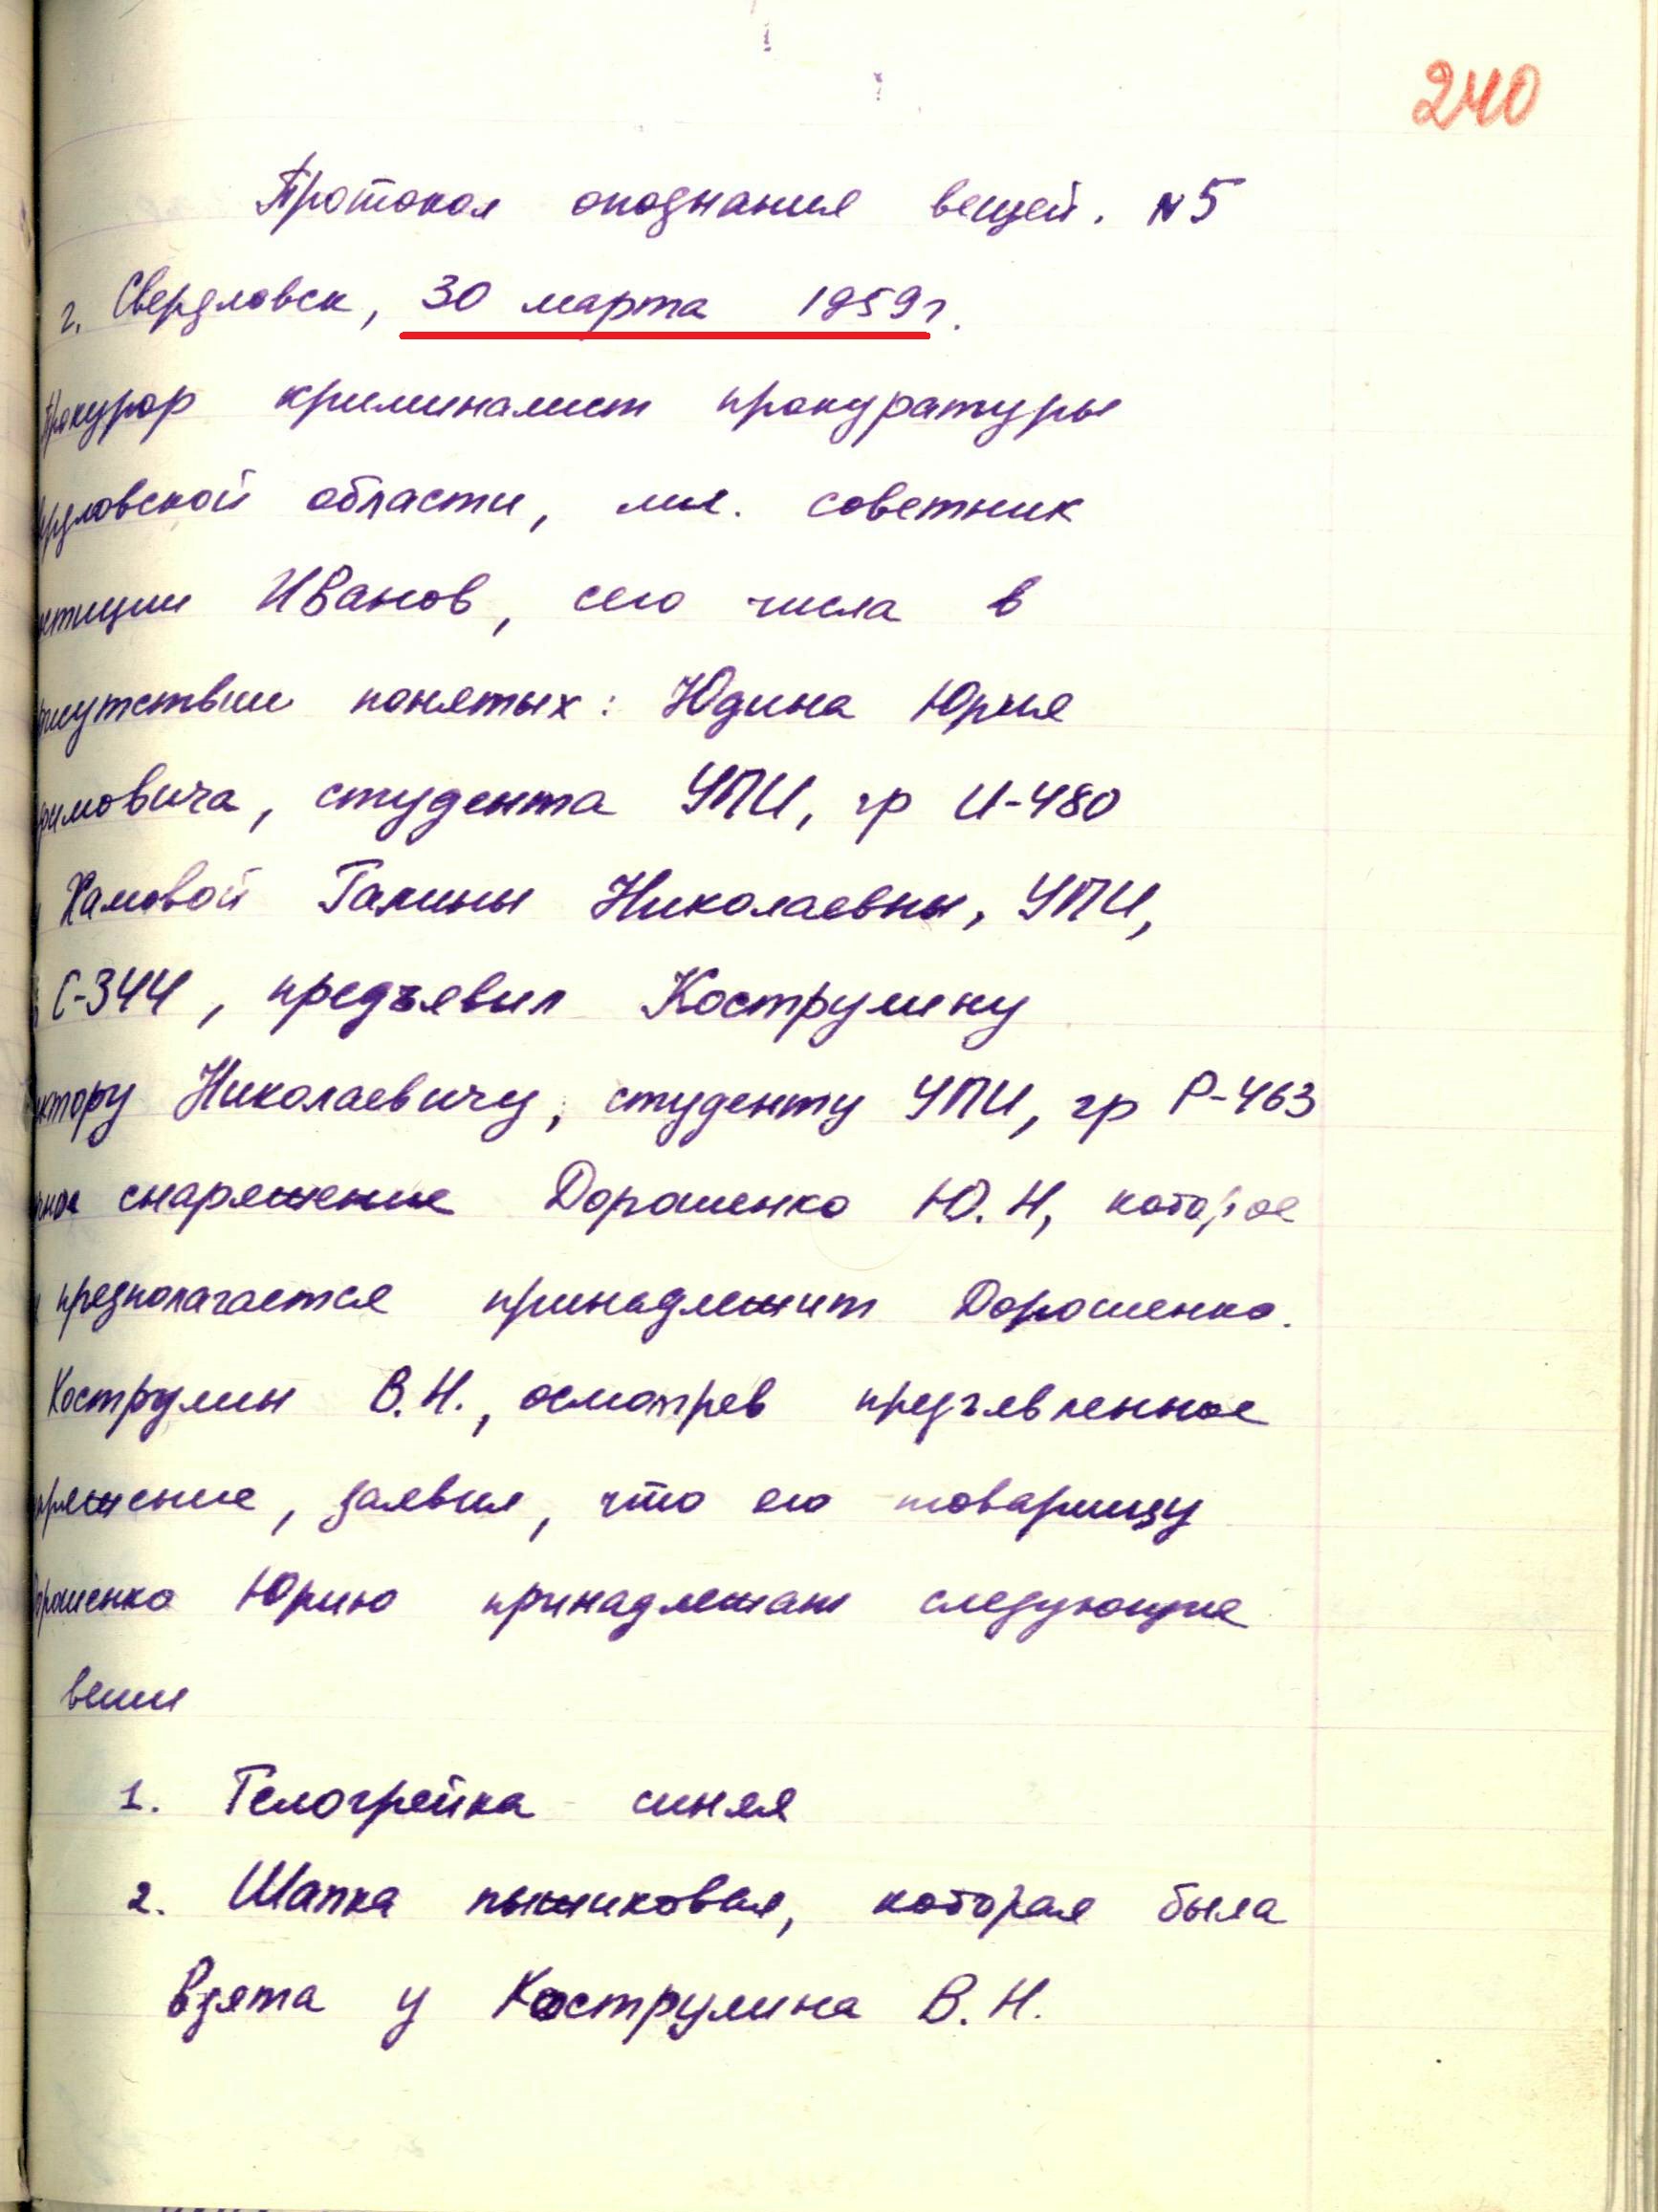 240
Протокол опознания вещей. N5
г. Свердловск, 30 марта 1959г.
Прокурор криминалист прокуратуры
рдловской области, мл. советник
стиции Иванов, сего числа в
рисутствии понятых: Юдина Юрия
имовича, студента УПИ, гр И-480
и Хамовой Галины Николаевны, УПИ,
С-344, предъявил Кострулину
иктору Николаевичу, студенту УПИ, гр Р-463
чное снаряжение Дорошенко Ю.Н, которое
предполагается принадлежит Дорошенко.
Кострулин В.Н., осмотрев предъявленное
аряжение, заявил, что его товарищу
орошенко Юрию принадлежат следующие
вещи
1. Телогрейка синяя
2. Шапка пыжиковая, которая была
взята у Кострулина В.Н.